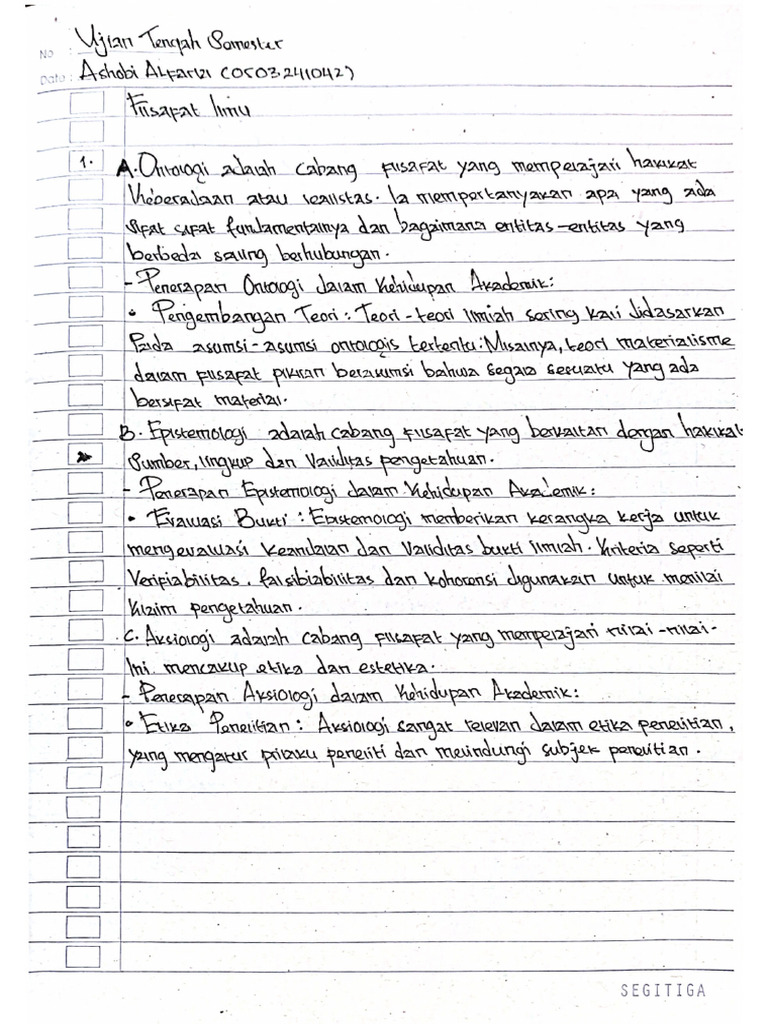 No : Ujian Tengah Semester
Date : Ashobi Alfarizi (05032411042)
Filsafat Ilmu
1. A. Ontologi adalah cabang filsafat yang mempelajari hakikat
keberadaan atau realistas. Ia mempertanyakan apa yang ada
sifat sifat fundamentalnya dan bagaimana entitas-entitas yang
berbeda saling berhubungan.
- Penerapan Ontologi dalam Kehidupan Akademik:
• Pengembangan Teori : Teori-teori Ilmiah sering kali didasarkan
Pada asumsi-asumsi ontologis tertentu: Misalnya, teori materialisme
dalam filsafat pikiran berasumsi bahwa segala sesuatu yang ada
bersifat material.
B. Epistemologi adalah cabang filsafat yang berkaitan dengan hakikat
Sumber, lingkup dan Validitas pengetahuan.
- Penerapan Epistemologi dalam Kehidupan Akademik:
• Evaluasi Bukti : Epistemologi memberikan kerangka kerja untuk
mengevaluasi keandalan dan Validitas bukti ilmiah. Kriteria seperti
Verifiabilitas, falsibiabilitas dan kohorensi digunakain untuk menilai
klaim pengetahuan.
C. Aksiologi adalah cabang filsafat yang mempelajari nilai-nilai-
Ini. mencakup etika dan estetika.
- Penerapan Aksiologi dalam Kehidupan Akademik:
• Etika Penelitian : Aksiologi sangat relevan dalam etika penelitian,
yang mengatur prilaku peneliti dan melindungi subjek penelitian.
SEGITIGA